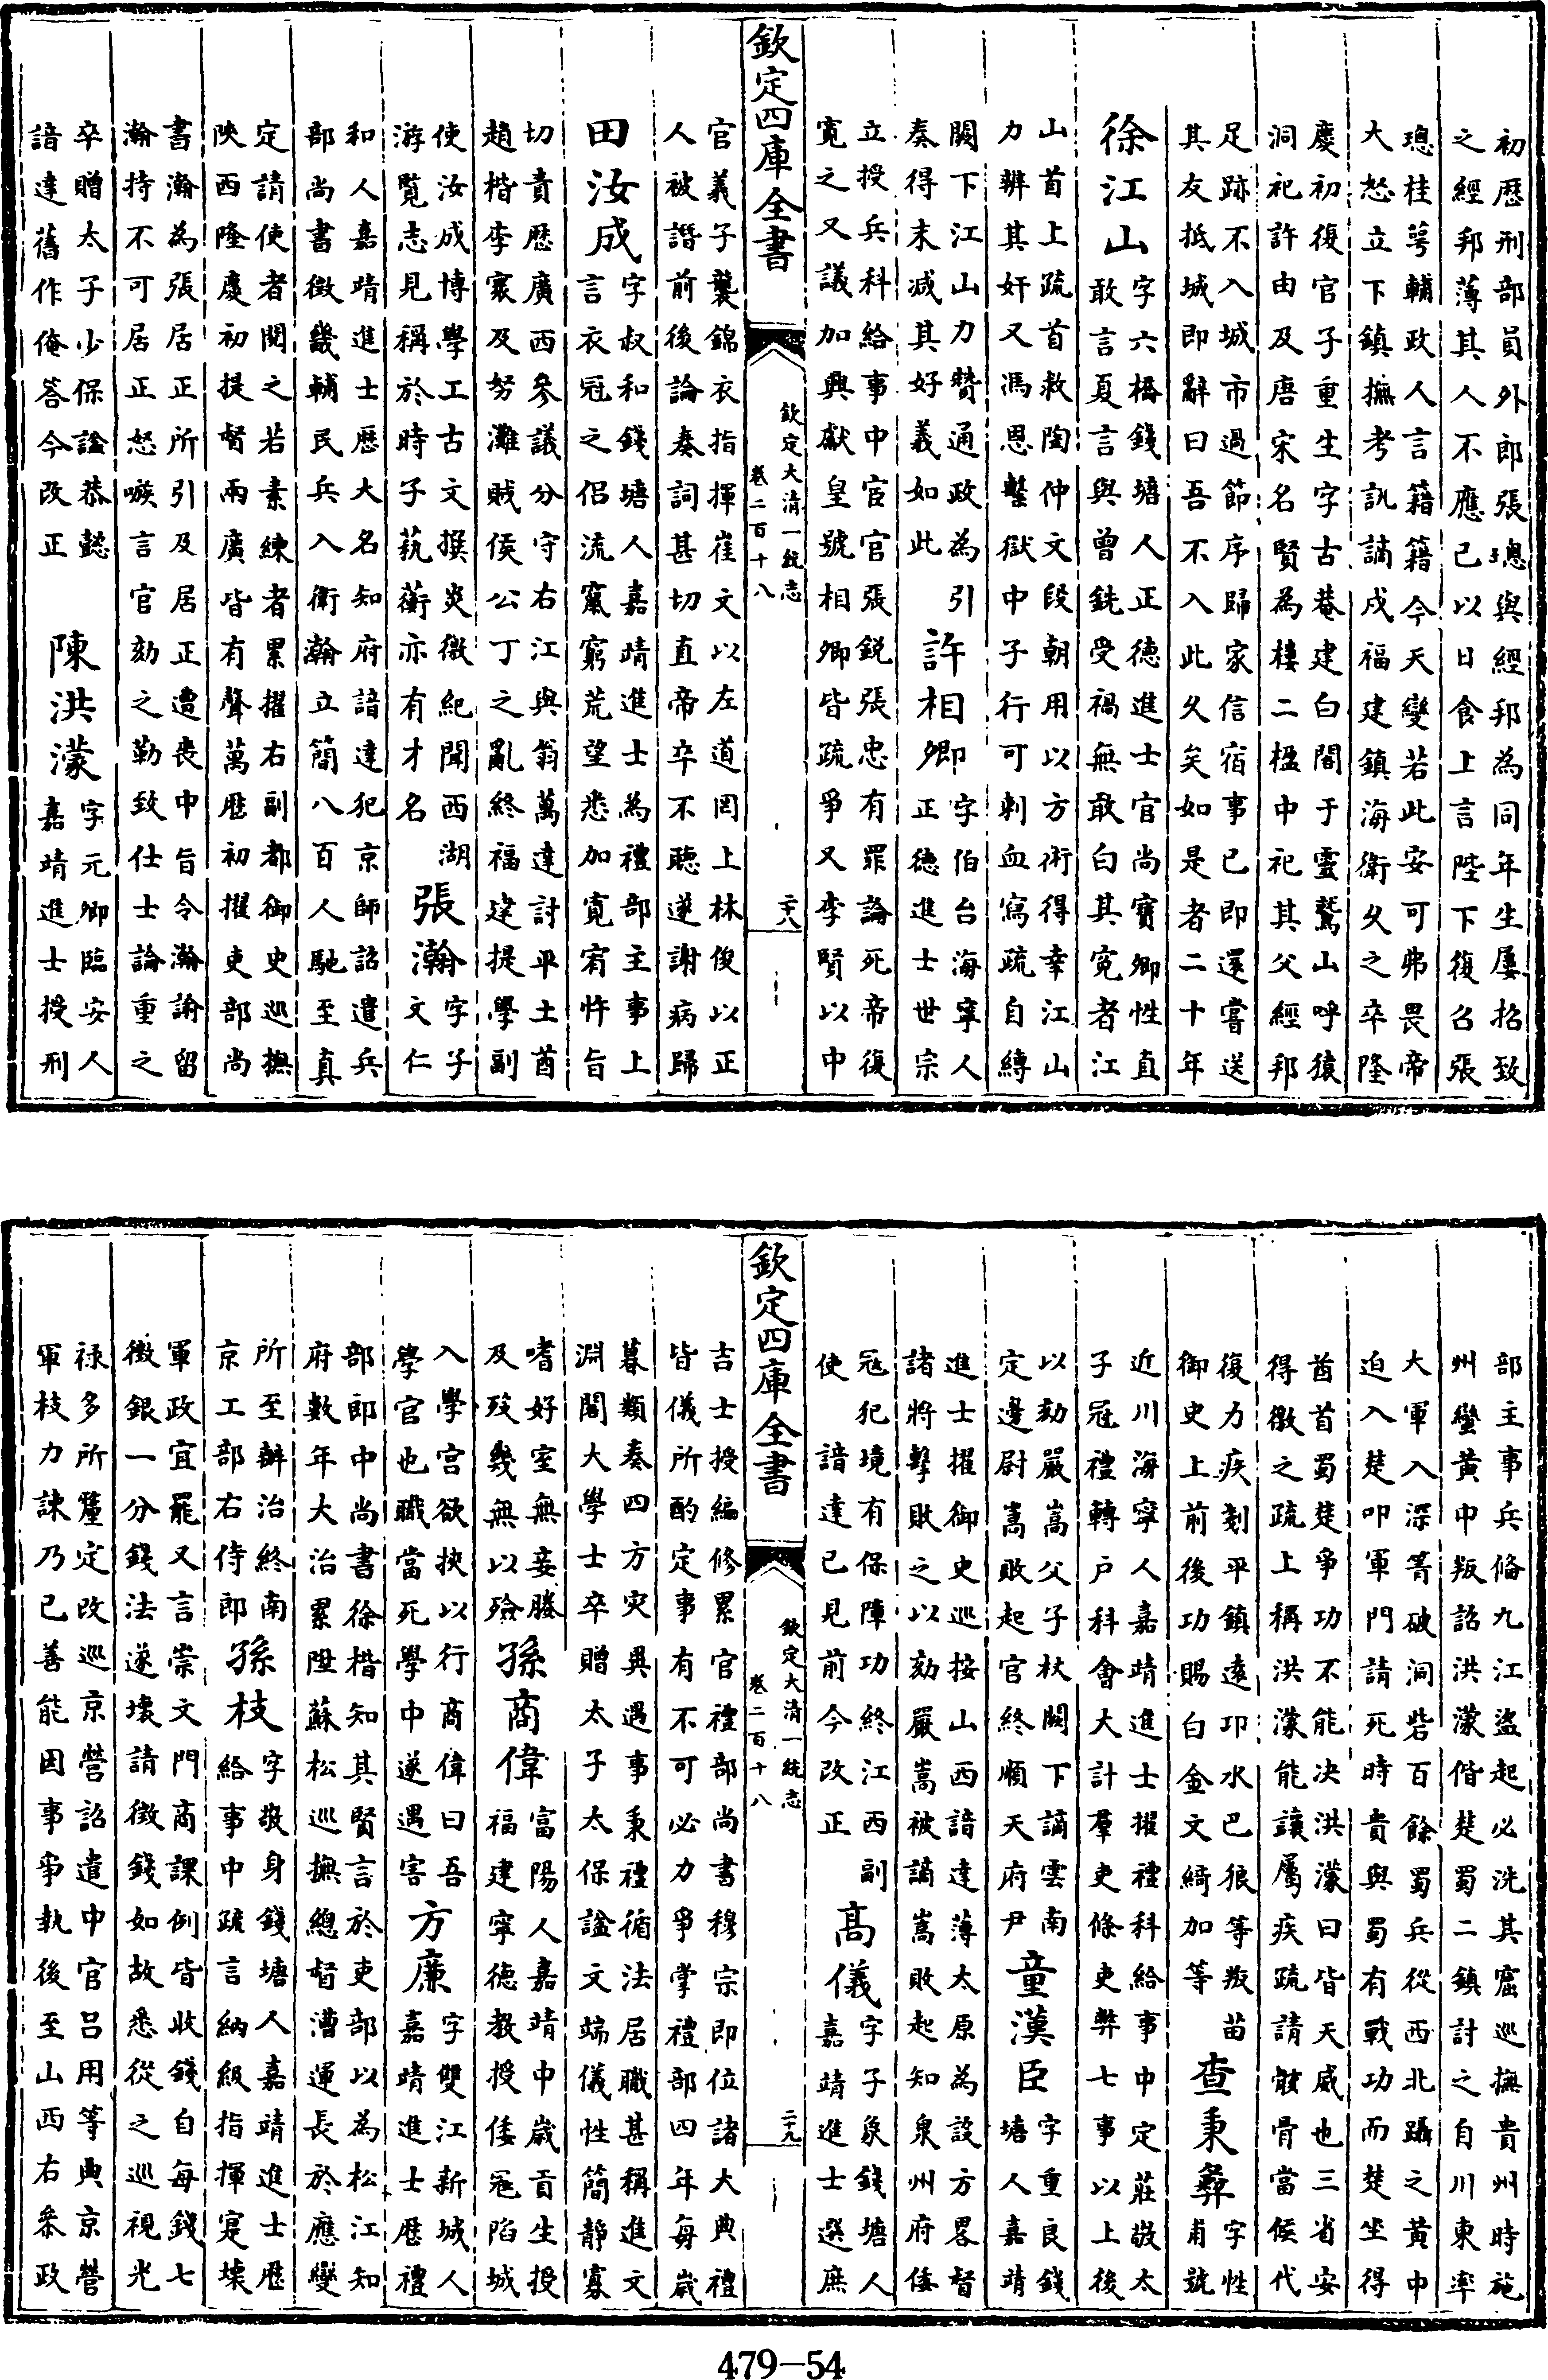 初歴刑部員外郎張璁與經邦為同年生屢招致
之經邦薄其人不應已以日食上言陛下復召張
璁桂萼輔政人言籍籍今天變若此安可弗畏帝
大怒立下鎮撫考訊謫戍福建鎮海衛久之卒隆
慶初復官子重生字古菴建白閣于靈鷲山呼猿
洞祀許由及唐宋名賢為樓二楹中祀其父經邦
足跡不入城市過節序歸家信宿事已即還嘗送
其友抵城即辭曰吾不入此久矣如是者二十年
徐江山字六橋錢塘人正德進士官尚寶卿性直
敢言夏言與曾銑受禍無敢白其寃者江
山首上疏首救陶仲文段朝用以方術得幸江山
力辨其奸又馮恩繫獄中子行可刺血寫疏自縛
闕下江山力贊通政為引
奏得末减其好義如此
許相卿字伯台海寧人
正德進士世宗
立授兵科給事中宦官張銳張忠有罪論死帝復
寛之又議加興獻皇號相卿皆疏爭又李賢以中
欽定四庫全書
欽定大清一統志
卷二百十八
二十八
官義子襲錦衣指揮崔文以左道罔上林俊以正
人被譖前後論奏詞甚切直帝卒不聽遂謝病歸
田汝成字叔和錢塘人嘉靖進士為禮部主事上
言衣冠之侣流竄窮荒望悉加寛宥忤旨
切責歴廣西參議分守右江與翁萬達討平土酋
趙楷李寰及努灘賊侯公丁之亂終福建提學副
使汝成博學工古文撰炎徼紀聞西湖
游覽志見稱於時子蓺蘅亦有才名
張瀚字子
文仁
和人嘉靖進士歴大名知府諳達犯京師詔遣兵
部尚書徵畿輔民兵入衛瀚立簡八百人馳至真
定請使者閱之若素練者累擢右副都御史巡撫
陜西隆慶初提督兩廣皆有聲萬歴初擢吏部尚
書瀚為張居正所引及居正遭喪中旨令瀚諭留
瀚持不可居正怒嗾言官劾之勒致仕士論重之
卒贈太子少保諡恭懿
諳達舊作俺答今改正
陳洪濛字元卿臨安人
嘉靖進士授刑
部主事兵備九江盜起必洗其窟巡撫貴州時施
州蠻黃中叛詔洪濛偕楚蜀二鎮討之自川東率
大軍入深箐破洞砦百餘蜀兵從西北躡之黃中
迫入楚叩軍門請死時貴與蜀有戰功而楚坐得
酋首蜀楚爭功不能决洪濛曰皆天威也三省安
得徼之疏上稱洪濛能讓屬疾疏請骸骨當候代
復力疾剗平鎮遠卭水巴狼等叛苗
御史上前後功賜白金文綺加等
查秉彝字性
甫號
近川海寧人嘉靖進士擢禮科給事中定莊敬太
子冠禮轉戶科會大計羣吏條吏弊七事以上後
以劾嚴嵩父子杖闕下謫雲南
定邊尉嵩敗起官終順天府尹
童漢臣字重良錢
塘人嘉靖
進士擢御史巡按山西諳達薄太原為設方畧督
諸將擊敗之以劾嚴嵩被謫嵩敗起知泉州府倭
冦犯境有保障功終江西副
使 諳達已見前今改正
高儀字子象錢塘人
嘉靖進士選庶
欽定四庫全書
欽定大清一統志
卷二百十八
二十九
吉士授編修累官禮部尚書穆宗即位諸大典禮
皆儀所酌定事有不可必力爭掌禮部四年每歲
暮類奏四方災異遇事秉禮循法居職甚稱進文
淵閣大學士卒贈太子太保諡文端儀性簡靜寡
嗜好室無妾媵
及歿幾無以殮
孫商偉富陽人嘉靖中歲貢生授
福建寧德教授倭冦陷城
入學宫欲挾以行商偉曰吾
學官也職當死學中遂遇害
方廉字雙江新城人
嘉靖進士歴禮
部郎中尚書徐楷知其賢言於吏部以為松江知
府數年大治累陞蘇松巡撫總督漕運長於應變
所至辦治終南
京工部右侍郎
孫枝字敬身錢塘人嘉靖進士歴
給事中疏言納級指揮寔壊
軍政宜罷又言崇文門商課例皆收錢自每錢七
徵銀一分錢法遂壊請徵錢如故悉從之巡視光
禄多所釐定改巡京營詔遣中官呂用等典京營
軍枝力諫乃已善能因事爭執後至山西右叅政
479-54